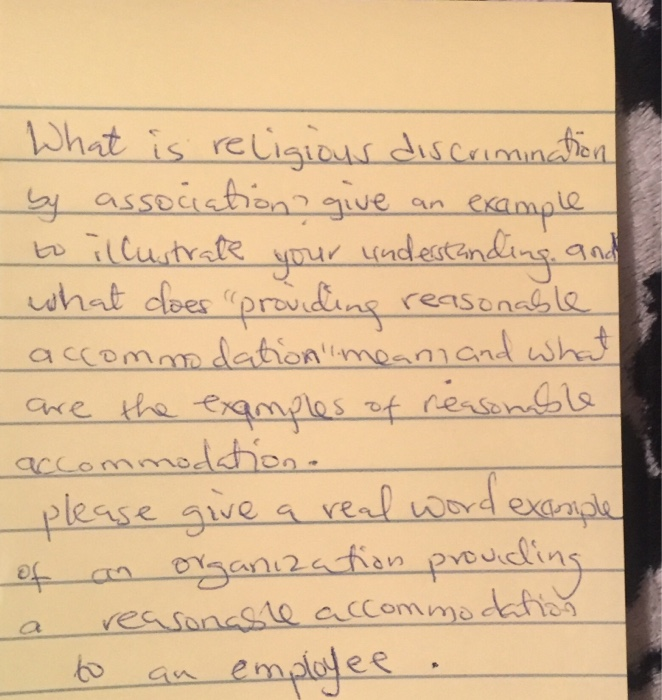 What is religious discrimination
by association? give an example
to illustrate your understanding. and
what does "providing reasonable
accommodation" mean? and what
are the examples of reasonable
accommodation.
please give a real word example
of an organization providing
a reasonable accommodation
to an employee.